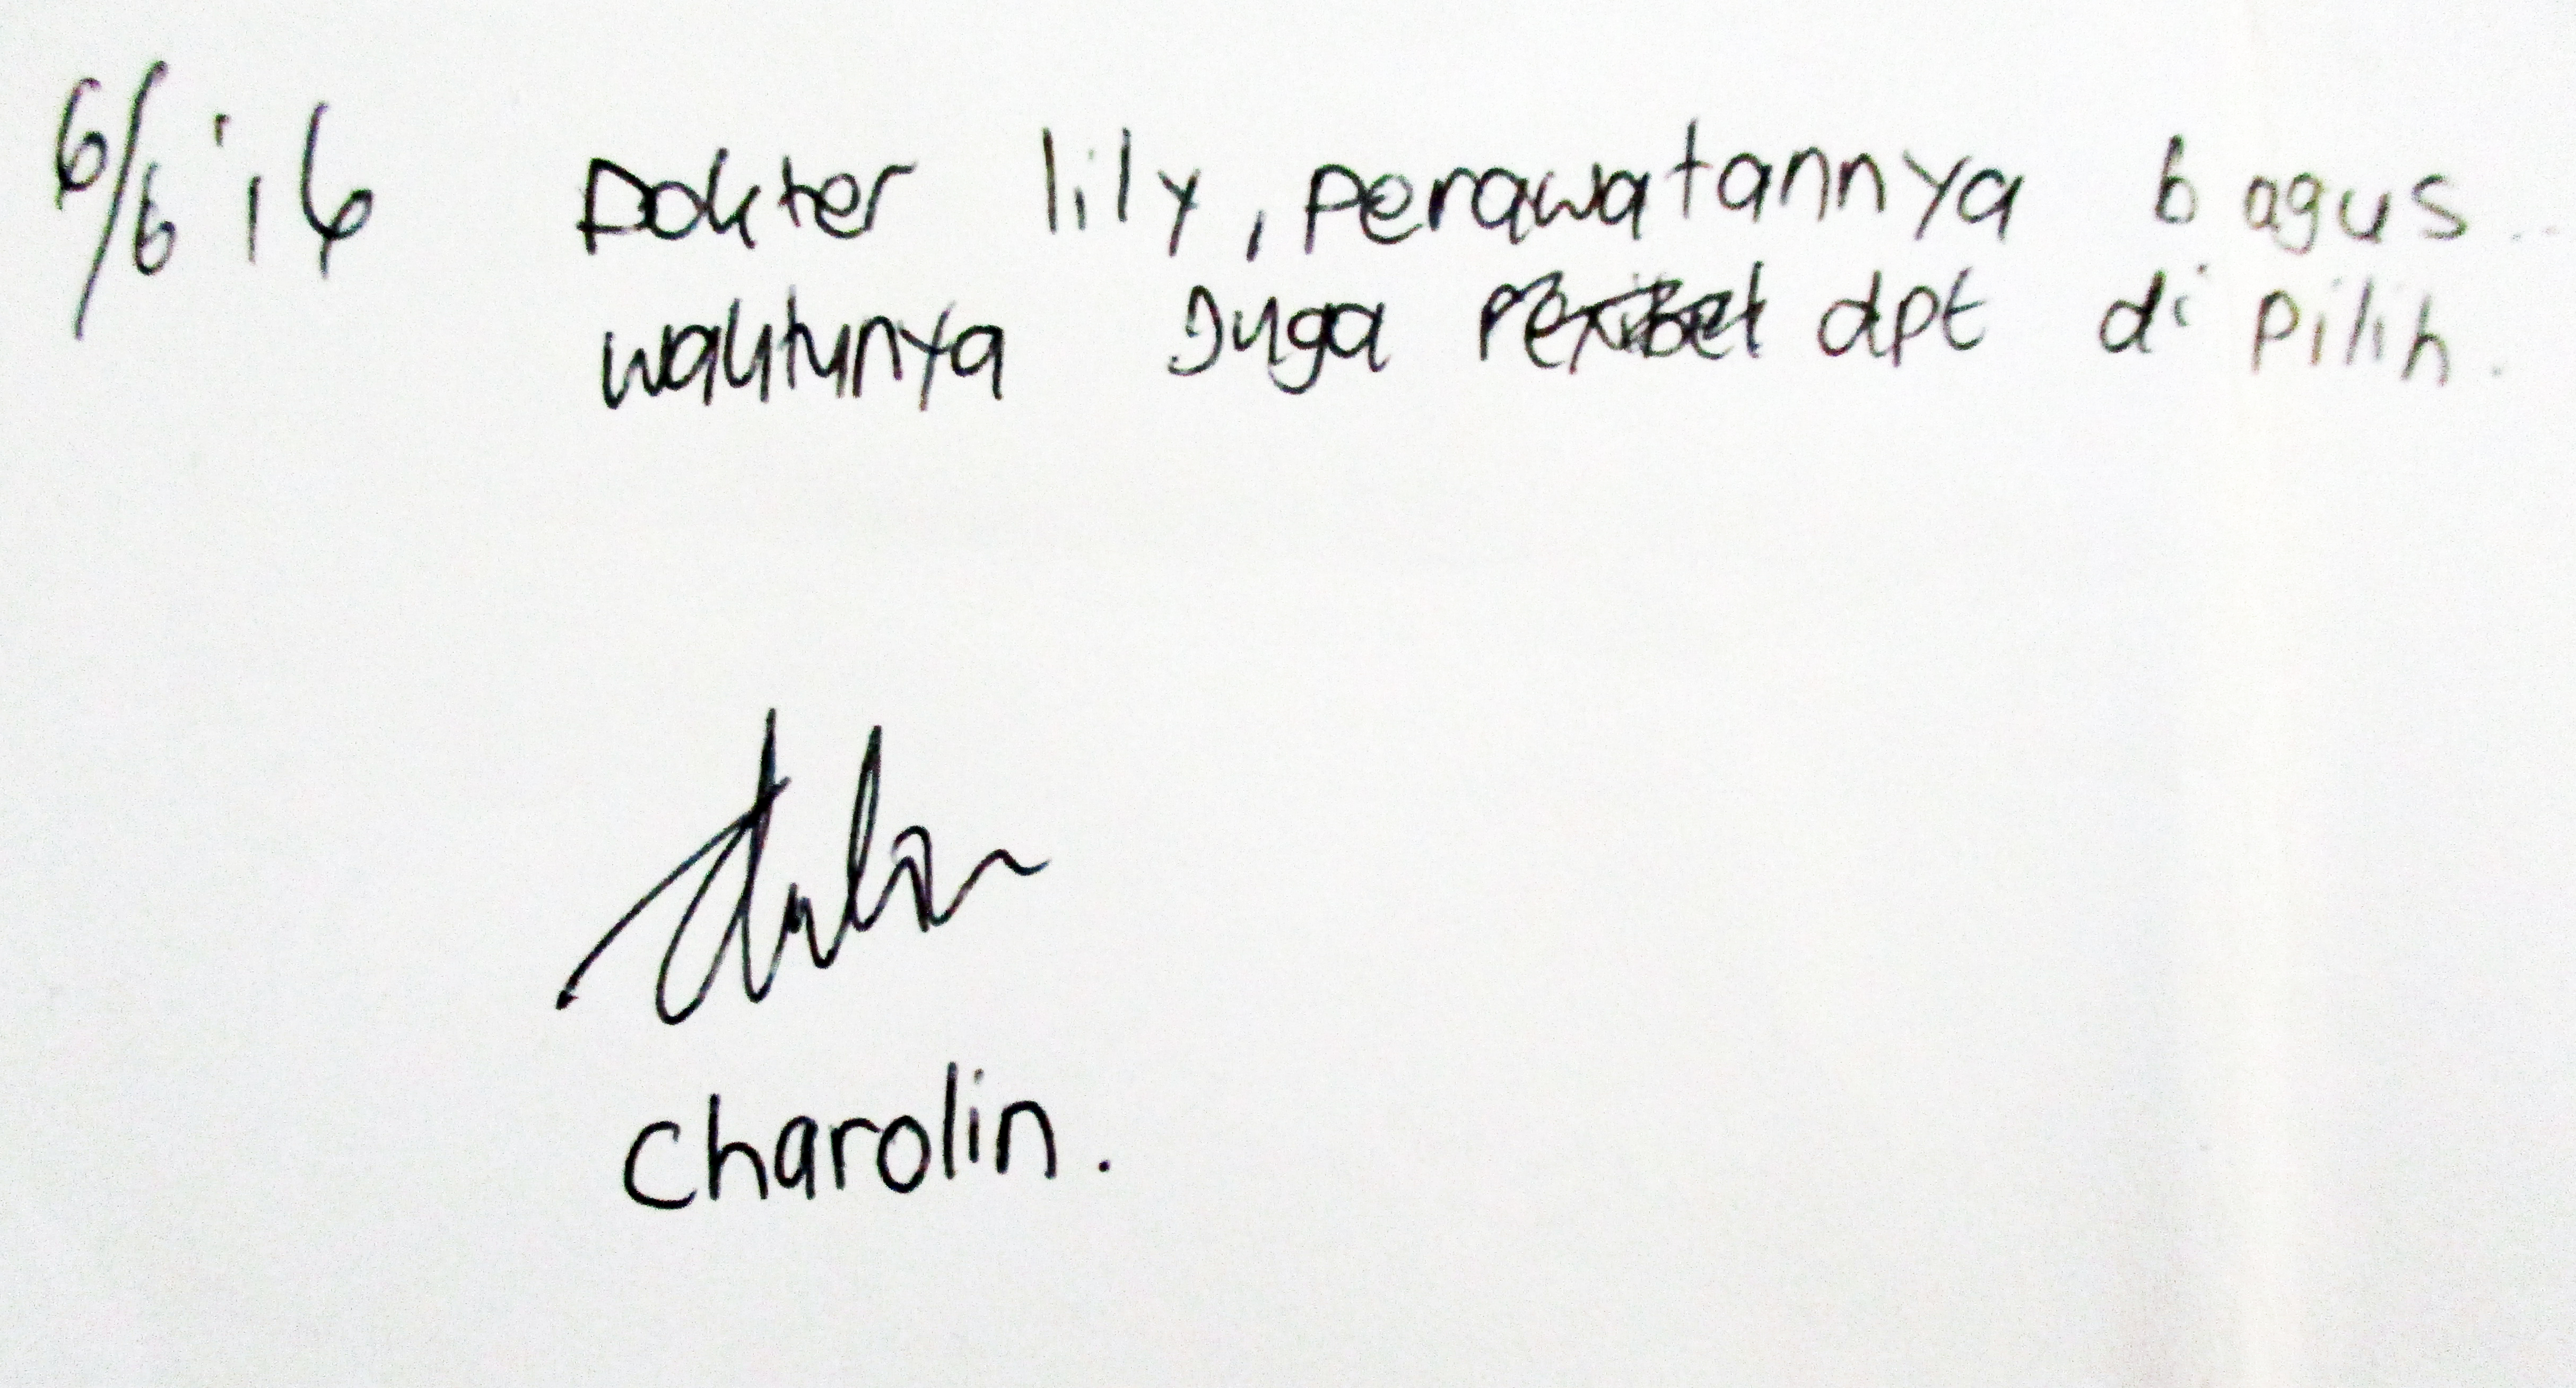 6/6 '16 Dokter lily, perawatannya bagus..
waktunya Juga dpt di pilih.
Charolin.